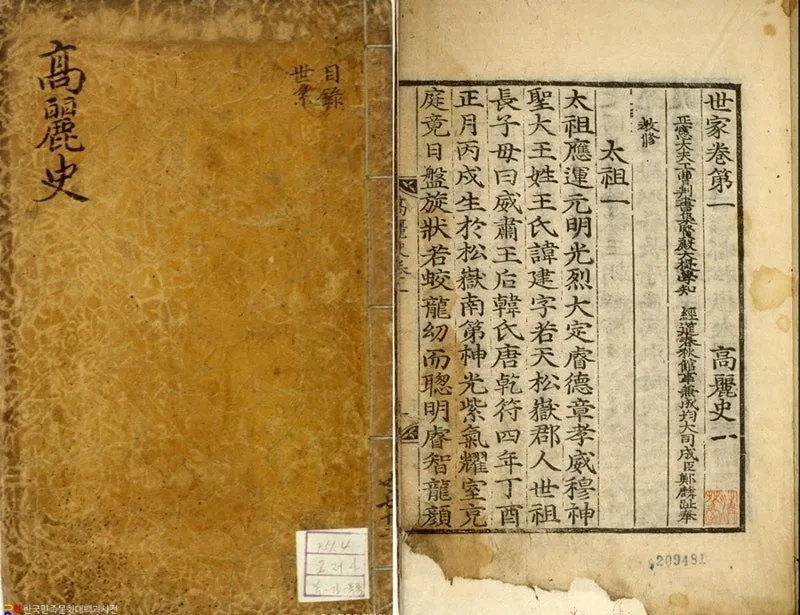 高麗史
目錄
世系
世家卷第一
高麗史一
正憲大夫工曹判書集賢殿大提學知
經筵春秋館事兼成均大司成臣鄭麟趾奉
敎修
太祖一
太祖應運元明光烈大定睿德章孝威穆神
聖大王姓王氏諱建字若天松嶽郡人世祖
長子母曰威肅王后韓氏唐乾符四年丁酉
正月丙戌生於松嶽南第神光紫氣耀室充
庭竟日盤旋狀若蛟龍幼而聰明睿智龍顔
高麗史卷一
209481
한국민족문화대백과사전